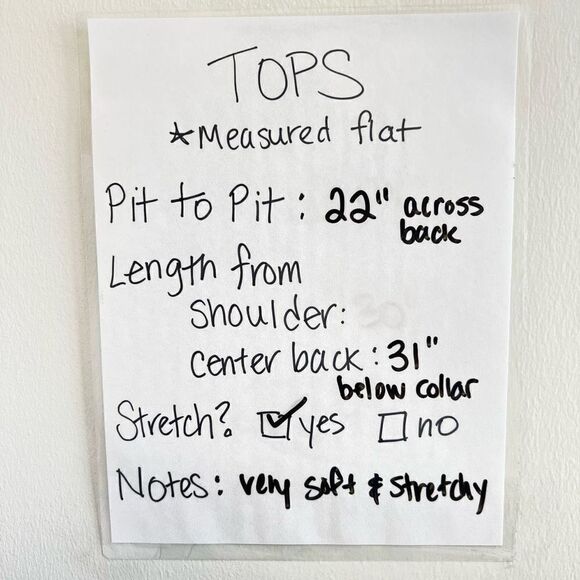 TOPS
*Measured flat
Pit to Pit: 22" across
back
Length from
shoulder:
center back: 31"
below collar
Stretch? yes no
Notes: very soft & stretchy